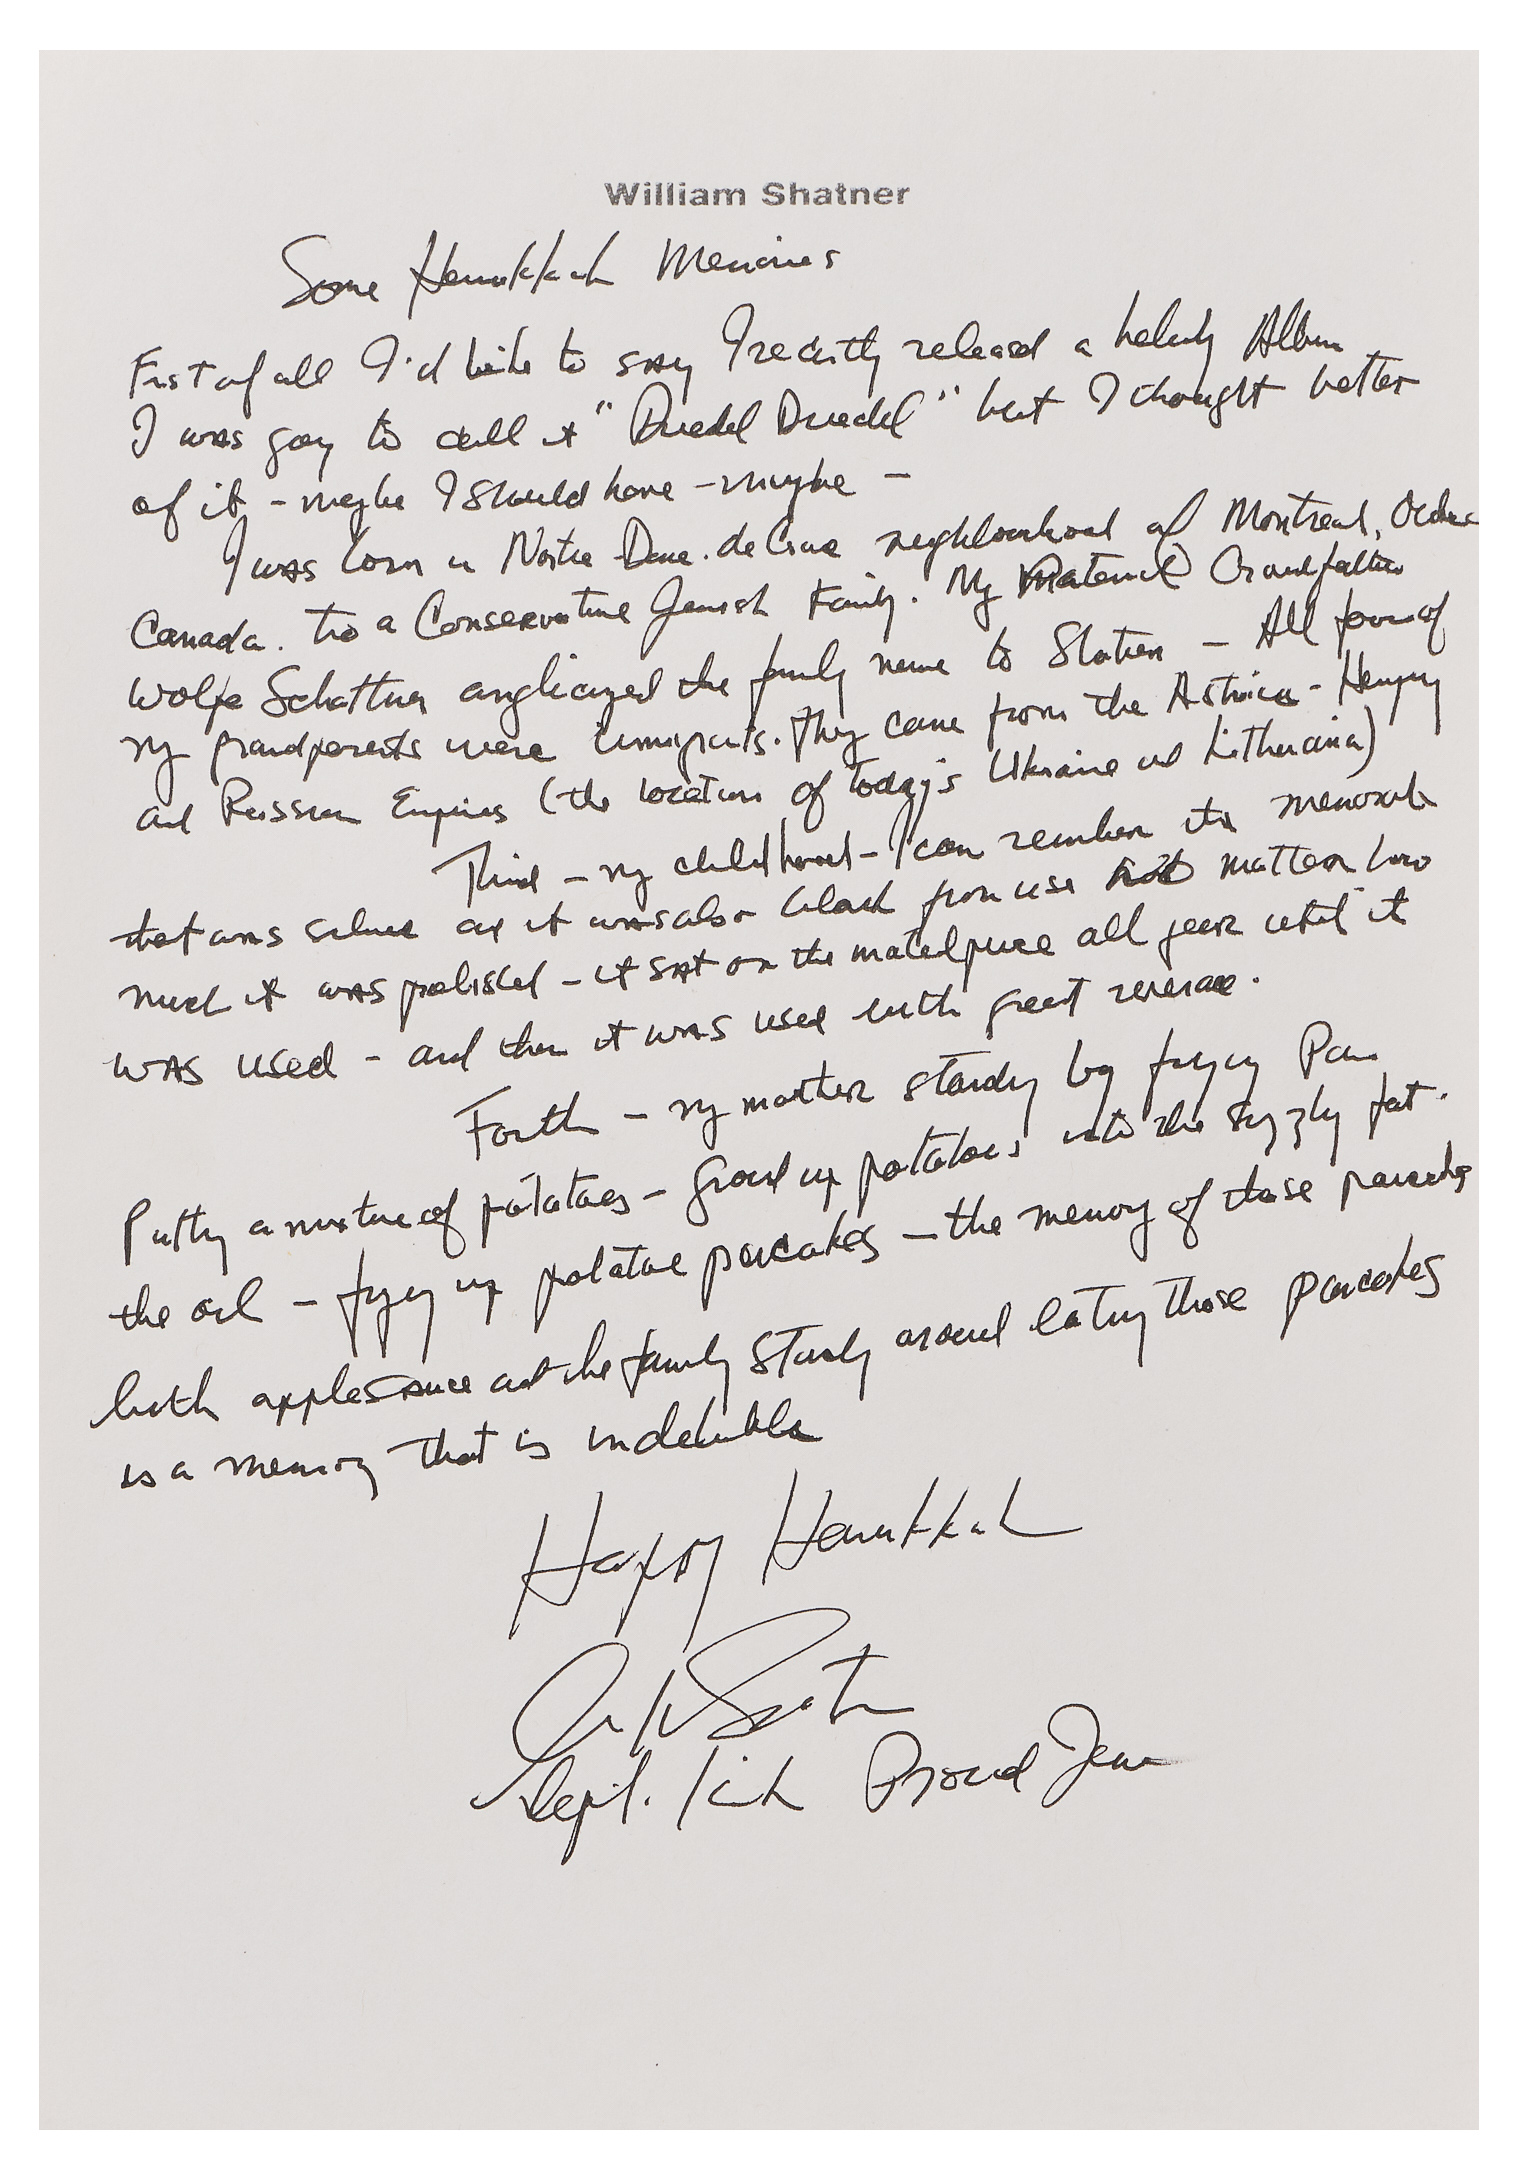 William Shatner
Some Hanukkah Memories
First of all I'd like to say I recently released a holiday Album
I was going to call it "Dreidel Dreidel" but I thought better
of it - maybe I should have - maybe -
I was born in Notre Dame de Grace neighbourhood of Montreal,
Canada. to a Conservative Jewish Family. My Paternal Grandfather
Wolfe Schattner anglicized the family name to Shatner - All four of
my grandparents were immigrants. They came from the Austria - Hungary
and Russian Empires (the location of today's Ukraine and Lithuania)
Third - my childhood - I can remember the menorah
that was silver as it was also black from use not matter how
much it was polished - it sat on the mantelpiece all year until it
was used - and then it was used with great reverence.
Forth - my mother standing by frying Pan
Putting a mixture of potatoes - ground up potatoes into the sizzling fat.
the oil - frying up potatoe pancakes - the memory of those pancakes
with applesauce and the family standing around eating those pancakes
is a memory that is indelible
Happy Hanukkah
Shatner
Capt. Kirk Proud Jew